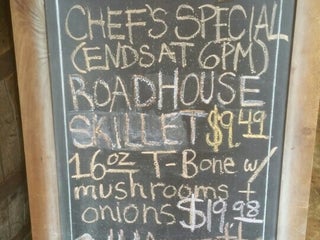 CHEF'S SPECIAL
(ENDS AT 6PM)
ROADHOUSE
SKILLET $9.49
16oz T-Bone w/
mushrooms +
onions $19.98